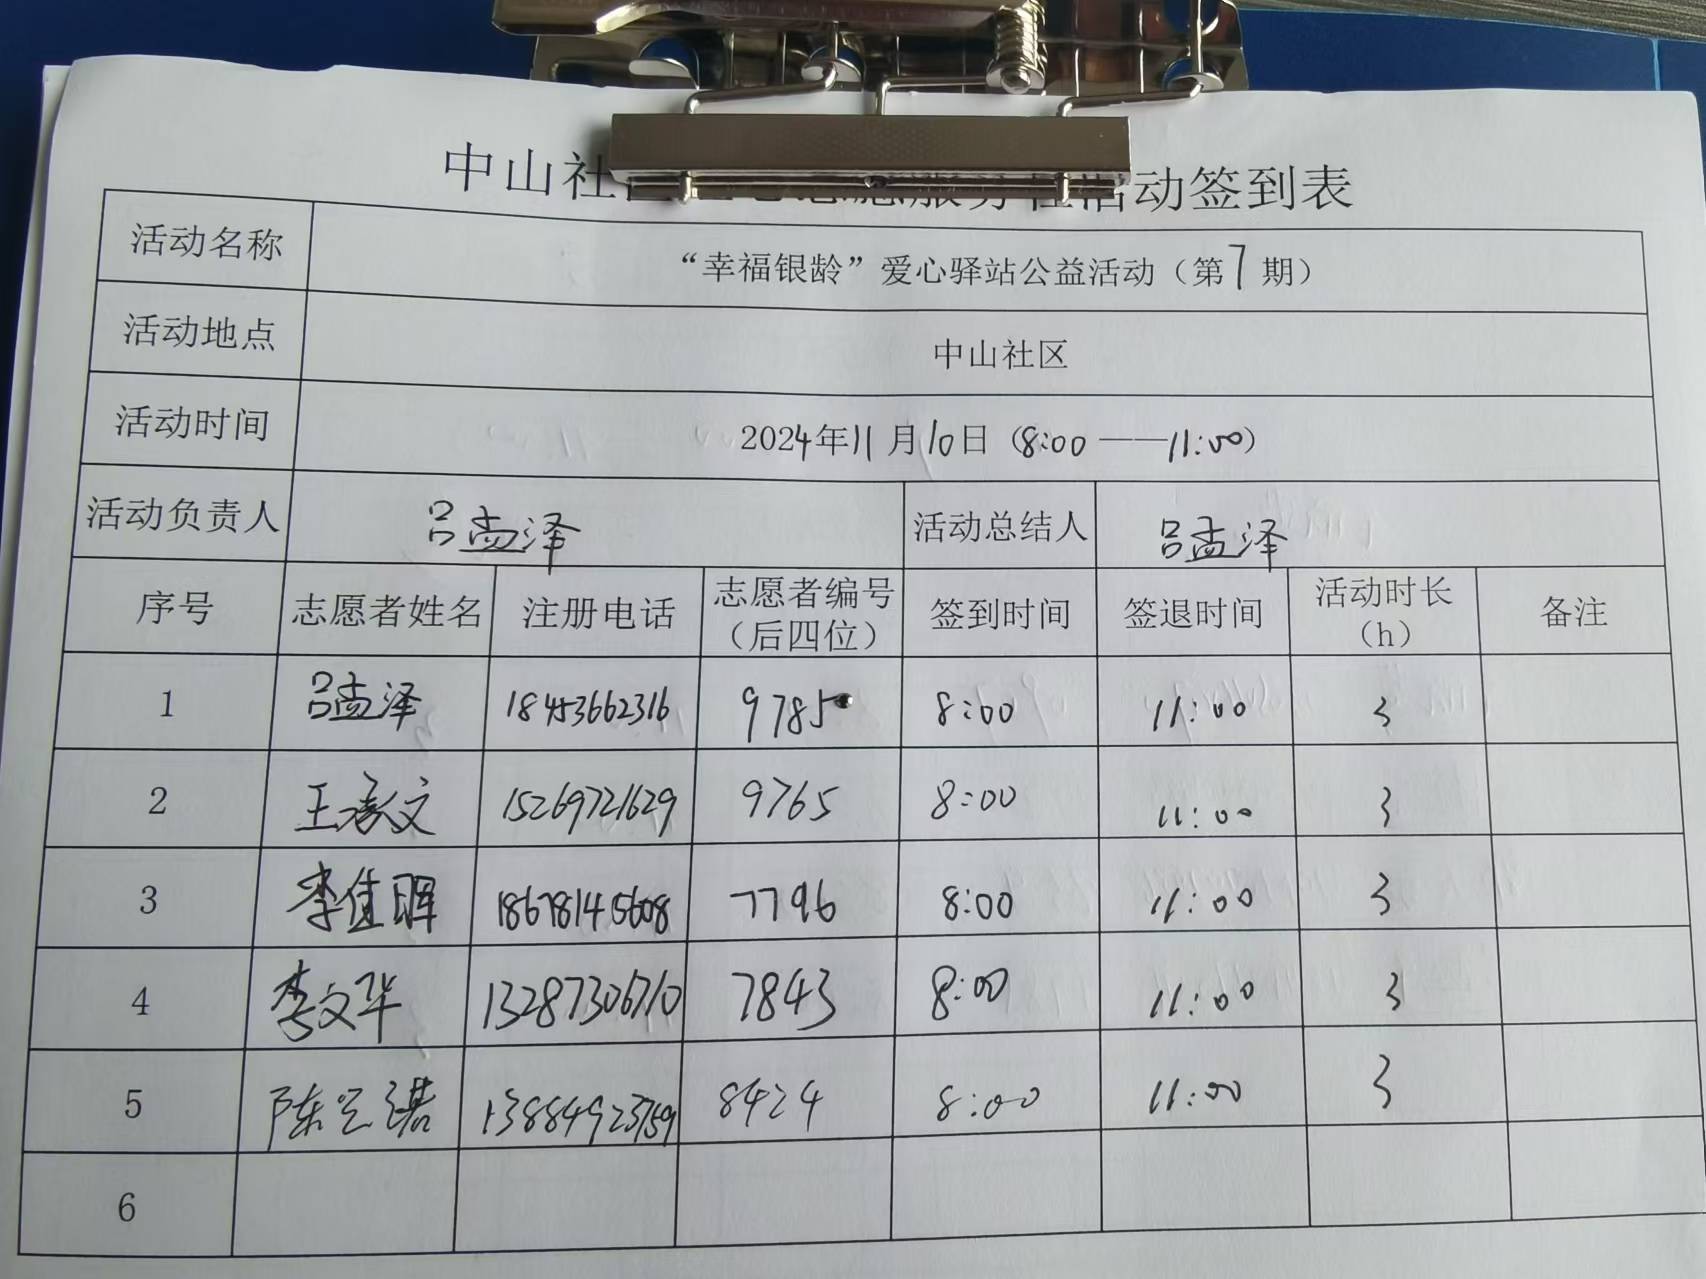 中山社 服务社活动签到表
活动名称 “幸福银龄”爱心驿站公益活动（第7期）
活动地点 中山社区
活动时间 2024年11月10日（8:00——11:00）
活动负责人 吕孟泽 活动总结人 吕孟泽
序号 志愿者姓名 注册电话 志愿者编号（后四位） 签到时间 签退时间 活动时长（h） 备注
1 吕孟泽 18453662316 9785 8:00 11:00 3
2 王承文 15269721629 9765 8:00 11:00 3
3 李佳晖 18678145608 7796 8:00 11:00 3
4 李文华 13287306710 7843 8:00 11:00 3
5 陈 13884923759 8424 8:00 11:00 3
6